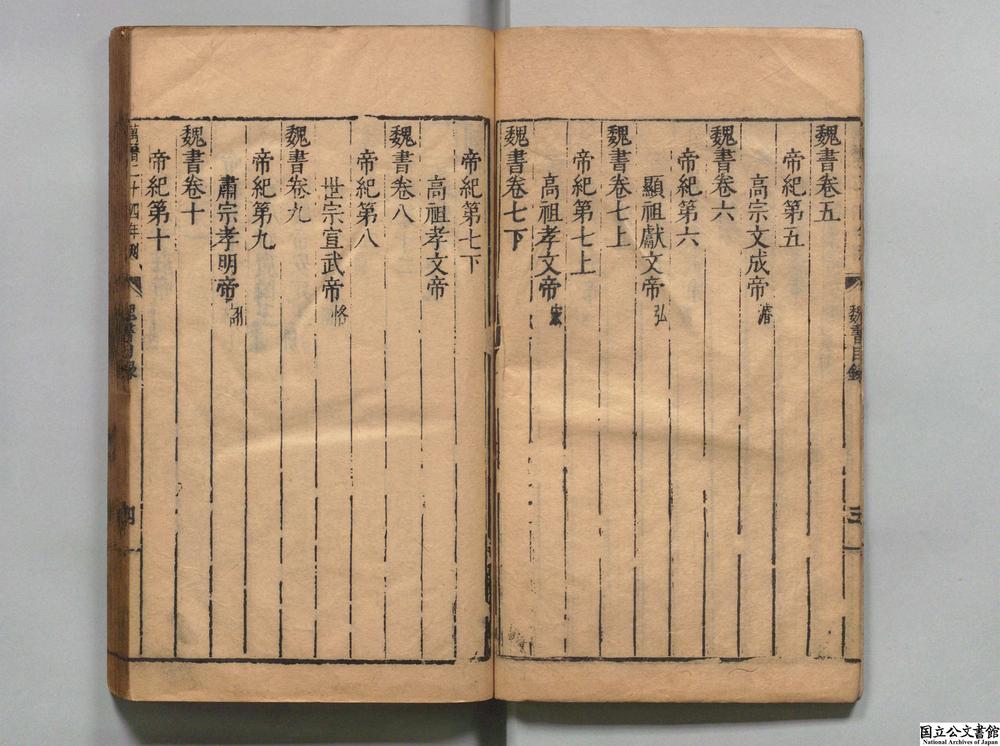 魏書卷五
帝紀第五
高宗文成帝濬
魏書卷六
帝紀第六
顯祖獻文帝弘
魏書卷七上
帝紀第七上
高祖孝文帝宏
魏書卷七下
帝紀第七下
高祖孝文帝
魏書卷八
帝紀第八
世宗宣武帝恪
魏書卷九
帝紀第九
肅宗孝明帝詡
魏書卷十
帝紀第十
萬曆二十四年刊
魏書目錄
四
魏書目錄
三
国立公文書館
National Archives of Japan